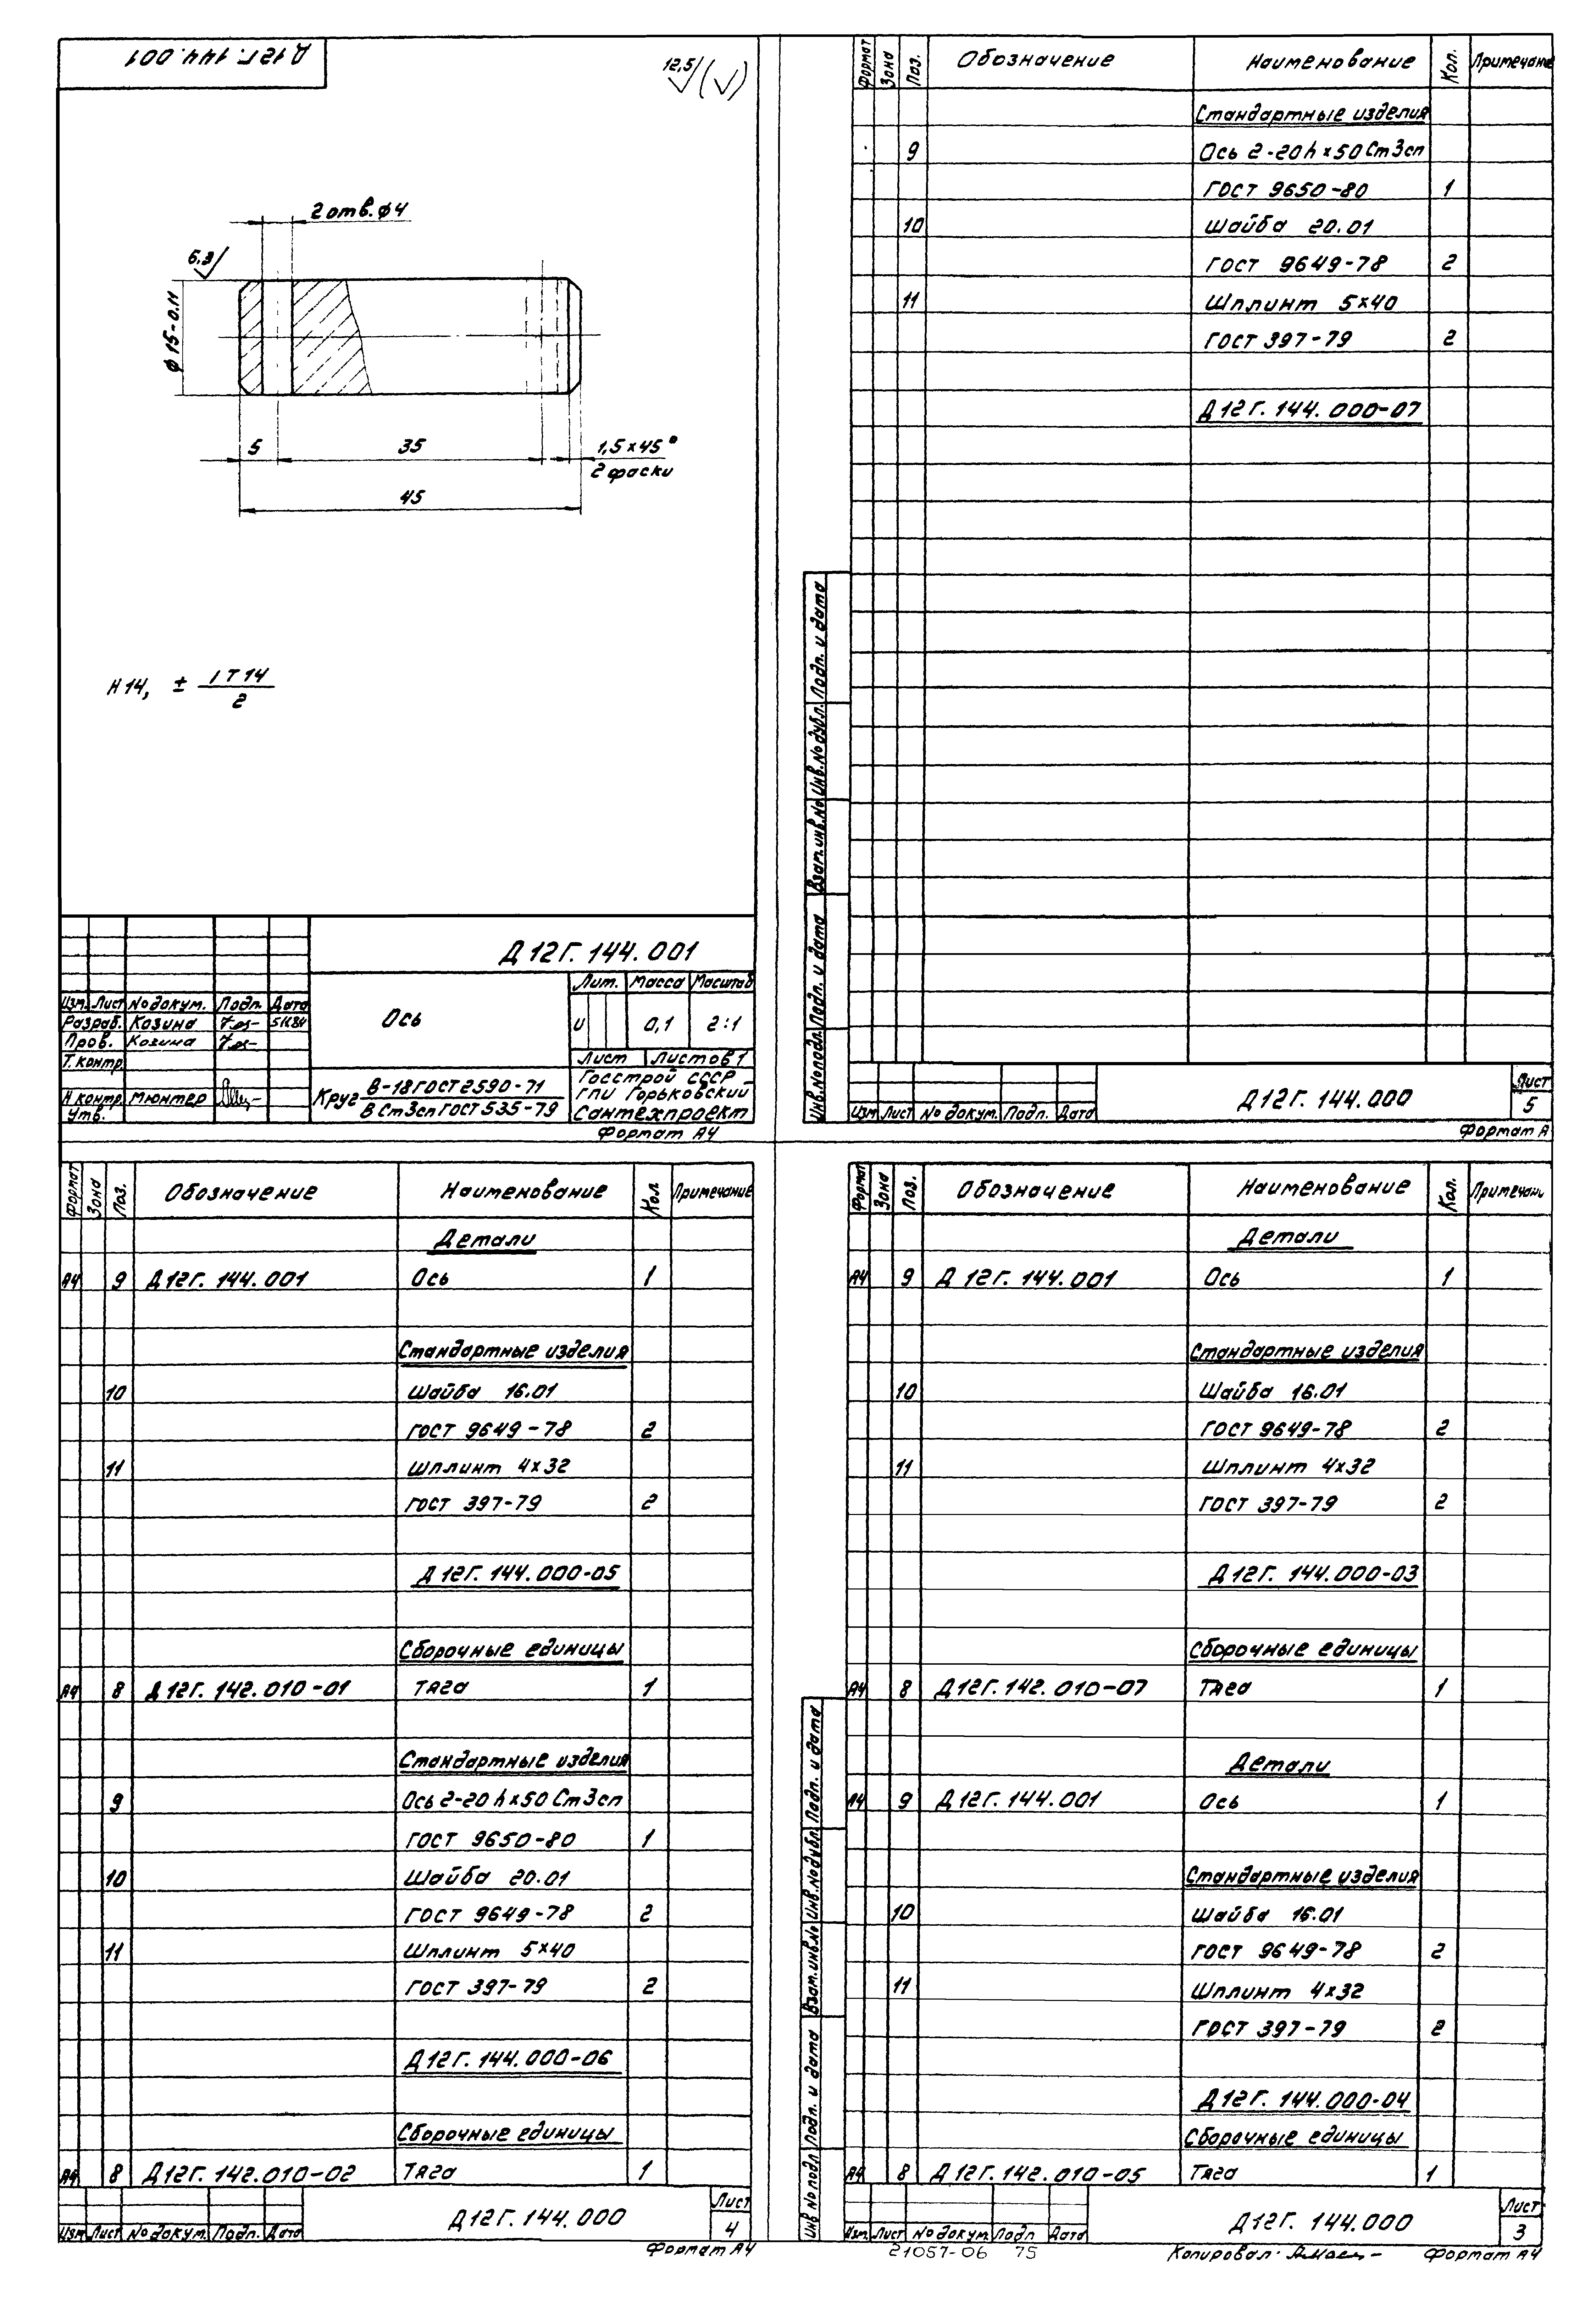 Д 12Г. 144. 001
12,5 (√)
2 отв. ф4
6,3
ф 15-0.11
5 35 1,5×45°
2 фаски
45
H14, ± IT14
2
Д 12Г. 144. 001
Изм. Лист № докум. Подп. Дата
Разраб. Козина
Пров. Козина
Т. контр.
Н контр. Мюнтер
Утв.
Ось
Лит. Масса Масштаб
И 0,1 2:1
Лист Листов 1
Круг В-18 ГОСТ 2590-71
В Ст3сп ГОСТ 535-79
Госстрой СССР
ГПИ Горьковский
Сантехпроект
Формат А4
Формат Зона Поз. Обозначение Наименование Кол. Примечани
Стандартные изделия
9 Ось 2-20h×50 Ст3сп
ГОСТ 9650-80 1
10 Шайба 20.01
ГОСТ 9649-78 2
11 Шплинт 5×40
ГОСТ 397-79 2
Д 12Г. 144. 000-07
Инв. № подл. Подп. и дата Взам. инв. № Инв. № дубл. Подп. и дата
Изм Лист № докум. Подп. Дата
Д 12Г. 144. 000
Лист
5
Формат А
Формат Зона Поз. Обозначение Наименование Кол Примечание
Детали
А4 9 Д 12Г. 144. 001 Ось 1
Стандартные изделия
10 Шайба 16.01
ГОСТ 9649-78 2
11 Шплинт 4×32
ГОСТ 397-79 2
Д 12Г. 144. 000-05
Сборочные единицы
А4 8 Д 12Г. 142. 010-01 Тяга 1
Стандартные изделия
9 Ось 2-20 h×50 Ст3сп
ГОСТ 9650-80 1
10 Шайба 20.01
ГОСТ 9649-78 2
11 Шплинт 5×40
ГОСТ 397-79 2
Д 12Г. 144. 000-06
Сборочные единицы
А4 8 Д 12Г. 142. 010-02 Тяга 1
Изм Лист № докум. Подп. Дата
Д 12Г. 144. 000
Лист
4
Формат А4
Формат Зона Поз. Обозначение Наименование Кол. Примечани
Детали
А4 9 Д 12Г. 144. 001 Ось 1
Стандартные изделия
10 Шайба 16.01
ГОСТ 9649-78 2
11 Шплинт 4×32
ГОСТ 397-79 2
Д 12Г. 144. 000-03
Сборочные единицы
А4 8 Д 12Г. 142. 010-07 Тяга 1
Детали
А4 9 Д 12Г. 144. 001 Ось 1
Стандартные изделия
10 Шайба 16.01
ГОСТ 9649-78 2
11 Шплинт 4×32
ГОСТ 397-79 2
Д 12Г. 144. 000-04
Сборочные единицы
А4 8 Д 12Г. 142. 010-05 Тяга 1
Инв № подл Подп. и дата Взам. инв. № Инв. № дубл. Подп. и дата
Изм. Лист № докум. Подп Дата
Д 12Г. 144. 000
Лист
3
21057-06 75
Копировал: Формат А4